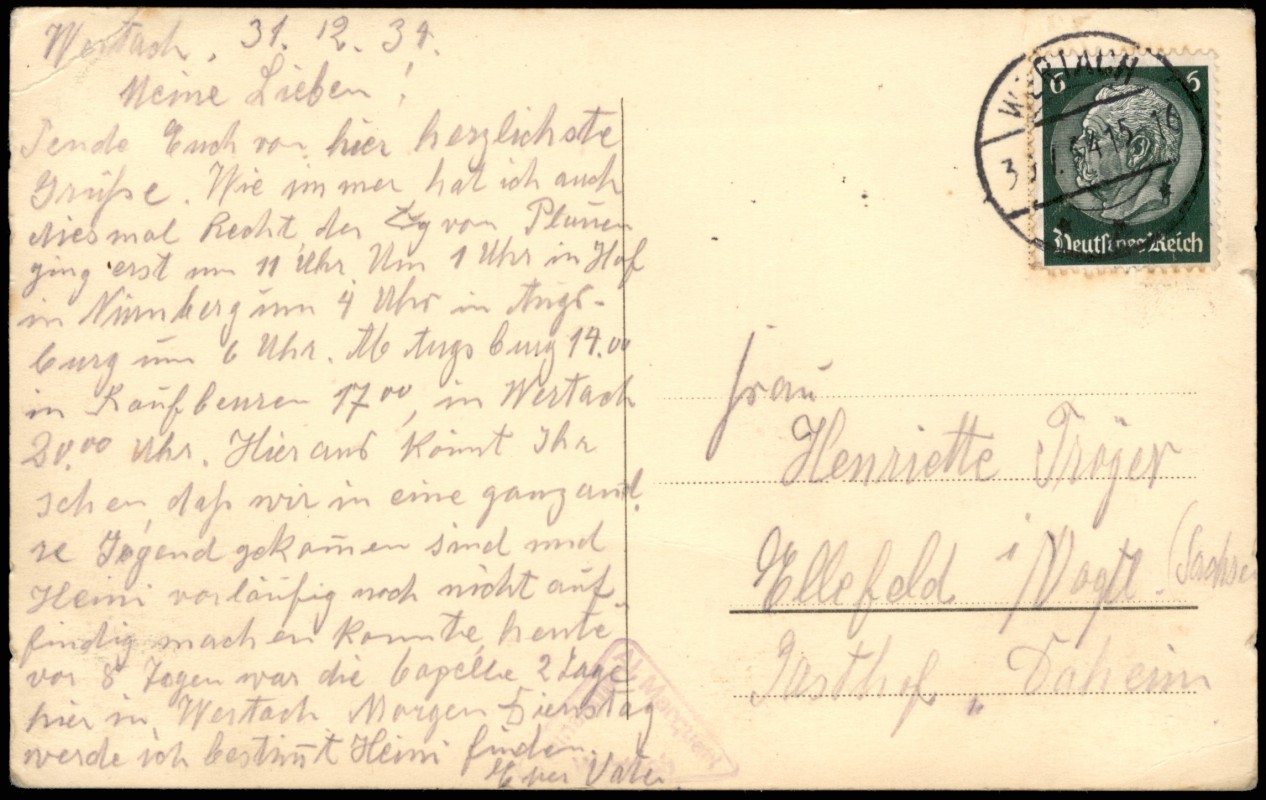 Wertach, 31. 12. 34.
Meine Lieben!
Sende Euch von hier herzlichste
Grüße. Wie immer hat ich auch
diesmal Recht der Zg von Plauen
ging erst um 11 Uhr. Um 1 Uhr in Hof
in Nürnberg um 4 Uhr in Augs-
burg um 6 Uhr. Ab Augsburg 14.00
in Kaufbeuren 17.00, in Wertach
20.00 Uhr. Hieraus könnt Ihr
sehen, daß wir in eine ganz and
re Gegend gekom̄en sind und
Heini vorläufig noch nicht auf
findig machen konnte, heute
vor 8 Tagen war die Capelle 2 Tage
hier in Wertach Morgen Dienstag
werde ich bestim̄t Heini finden.
Euer Vater
WERTACH
15-16
6 6
Deutsches Reich
Frau
Henriette Tröger
Ellefeld i/Vogtl. (Sachse
Gasthof „Daheim